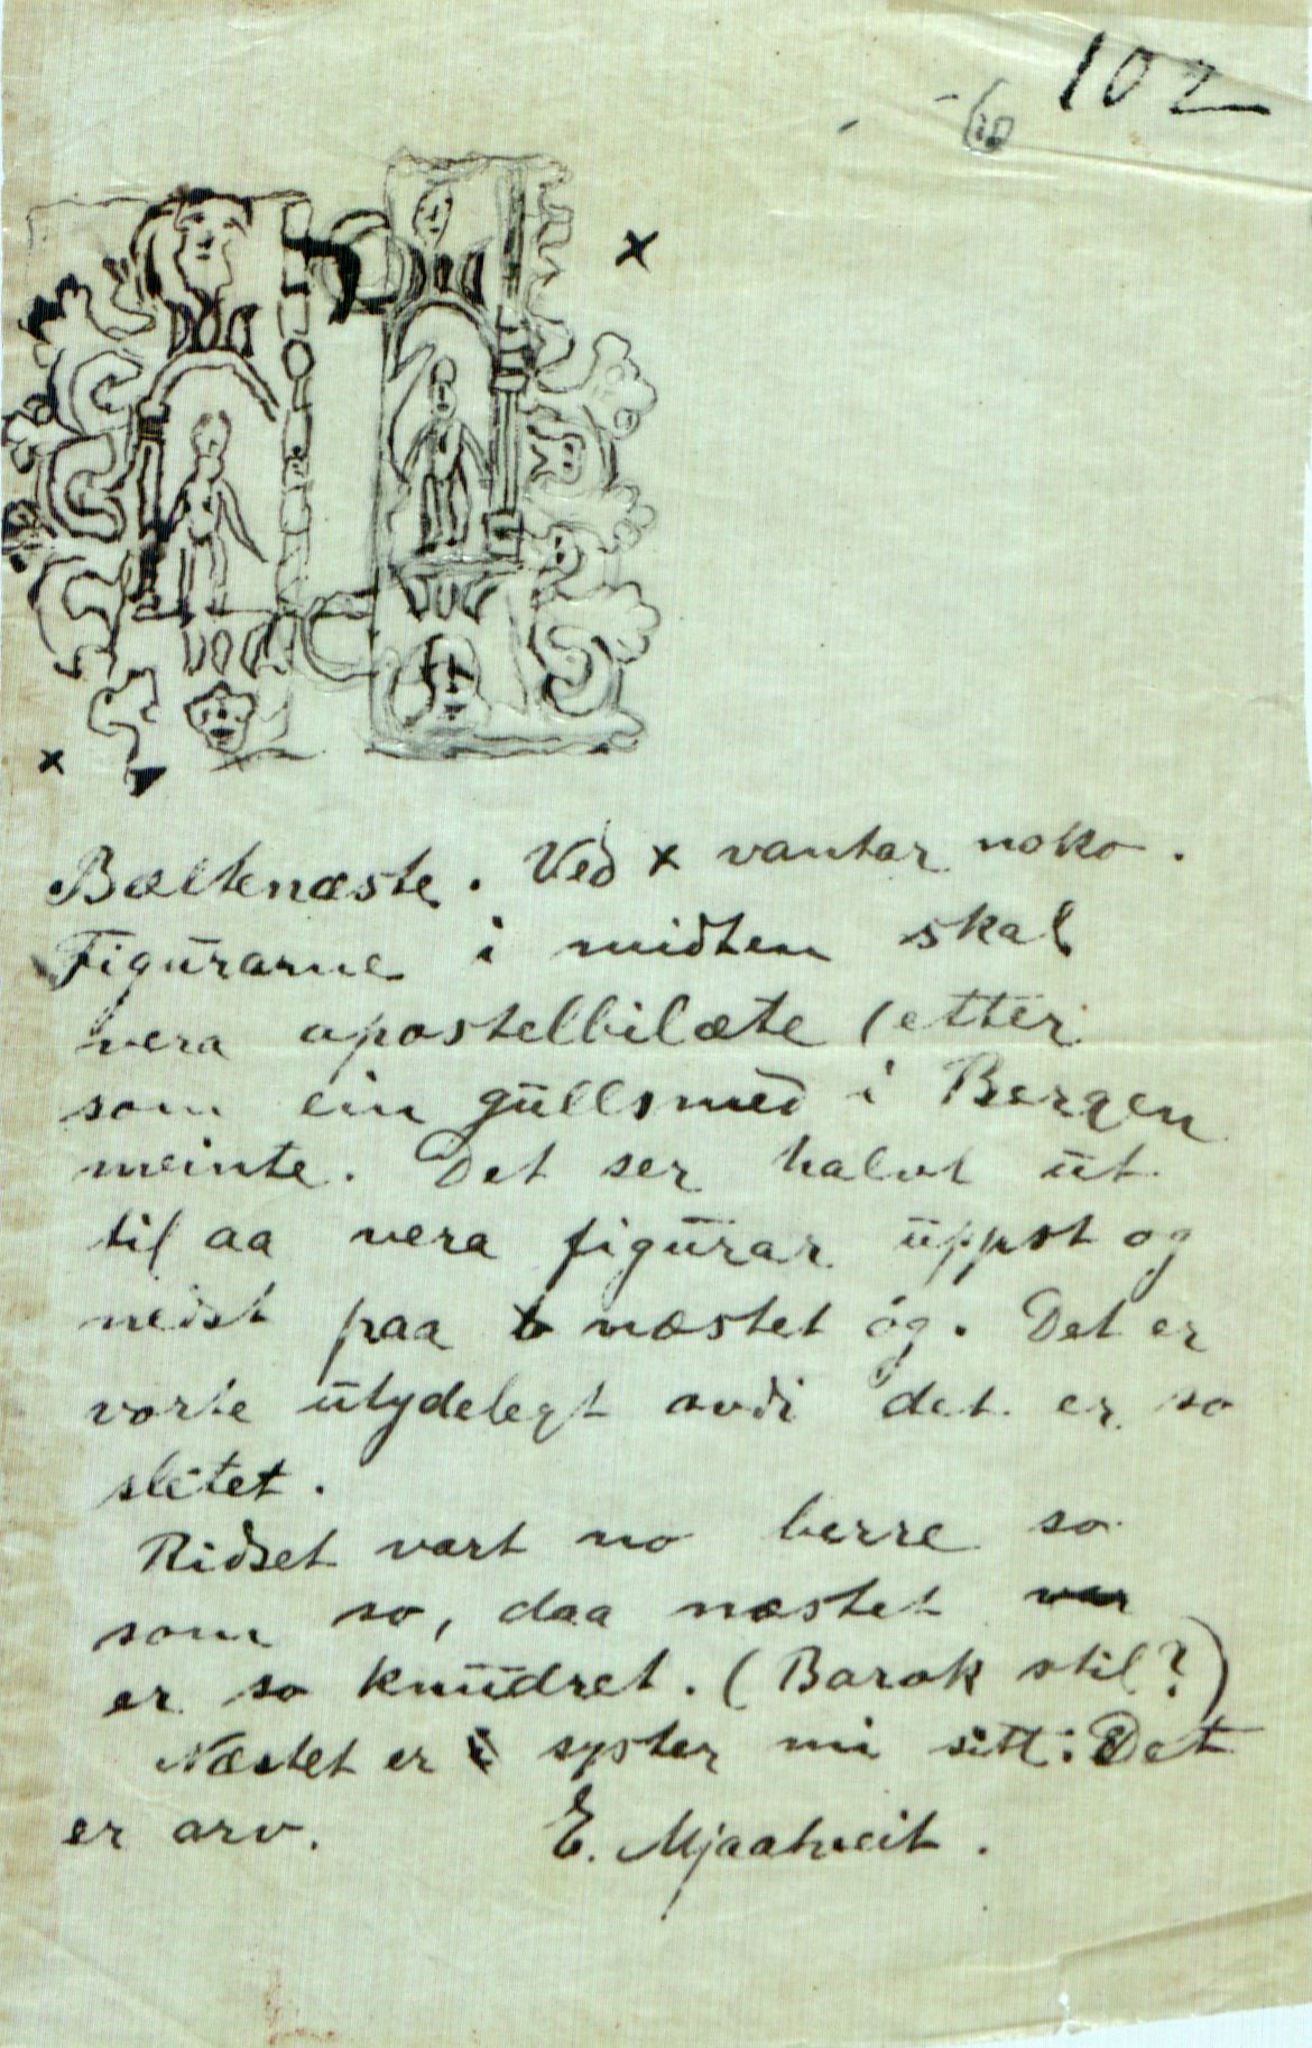 102
Bæltenæste. Ved x vantar noko.
Figurarne i midten skal
vera apostelbilæte (etter
som ein gullsmed i Bergen
meinte. Det ser halvt ut
til aa vera figurar uppst og
nedst paa næstet óg. Det er
vorte utydelegt avdi det er so
slitet.
Ridset vart no berre so
som so, daa næstet
er so knudret. (Barok stil?)
Næstet er syster mi sitt: Det
er arv. E. Mjaatveit.